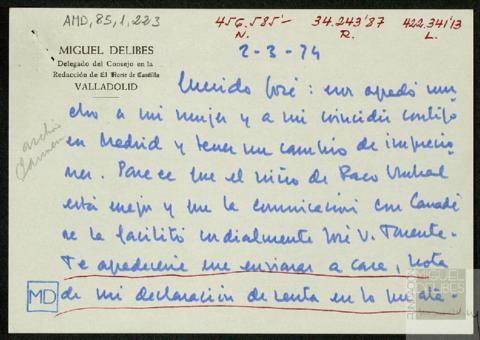 AMD, 85, 1, 223
456.585'- 34.243'87 422.341'13
N. R. L.
MIGUEL DELIBES
Delegado del Consejo en la
Redacción de El Norte de Castilla
VALLADOLID
2-3-74
Querido José: nos agradó mu-
cho a mi mujer y a mi coincidir contigo
en Madrid y tener un cambio de impresio-
nes. Parece que el niño de Paco Umbral
está mejor y que la comunicación con Canadá
se la facilitó cordialmente José V.
Te agradeceré me enviaras a casa, nota
de mi declaración de renta en lo que ata-
MD
FUNDACIÓN
MIGUEL
DELIBES